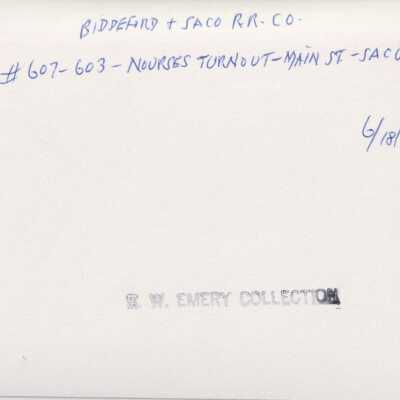 BIDDEFORD + SACO R.R. CO.
# 607-603 - NOURSES TURNOUT - MAIN ST - SACO
6/18/
W. EMERY COLLECTION